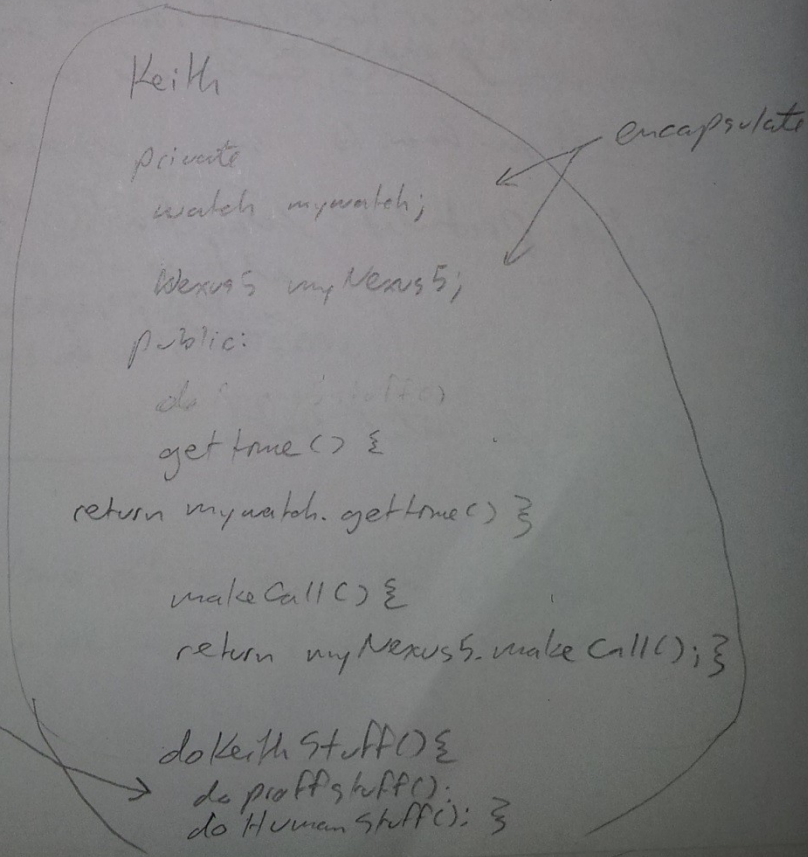 Keith
encapsulate
private
watch mywatch;
Nexus5 myNexus5;
public:
do stuff()
gettime() {
return mywatch.gettime() }
makeCall() {
return myNexus5.makeCall(); }
doKeithStuff() {
do proffstuff();
doHumanStuff(); }